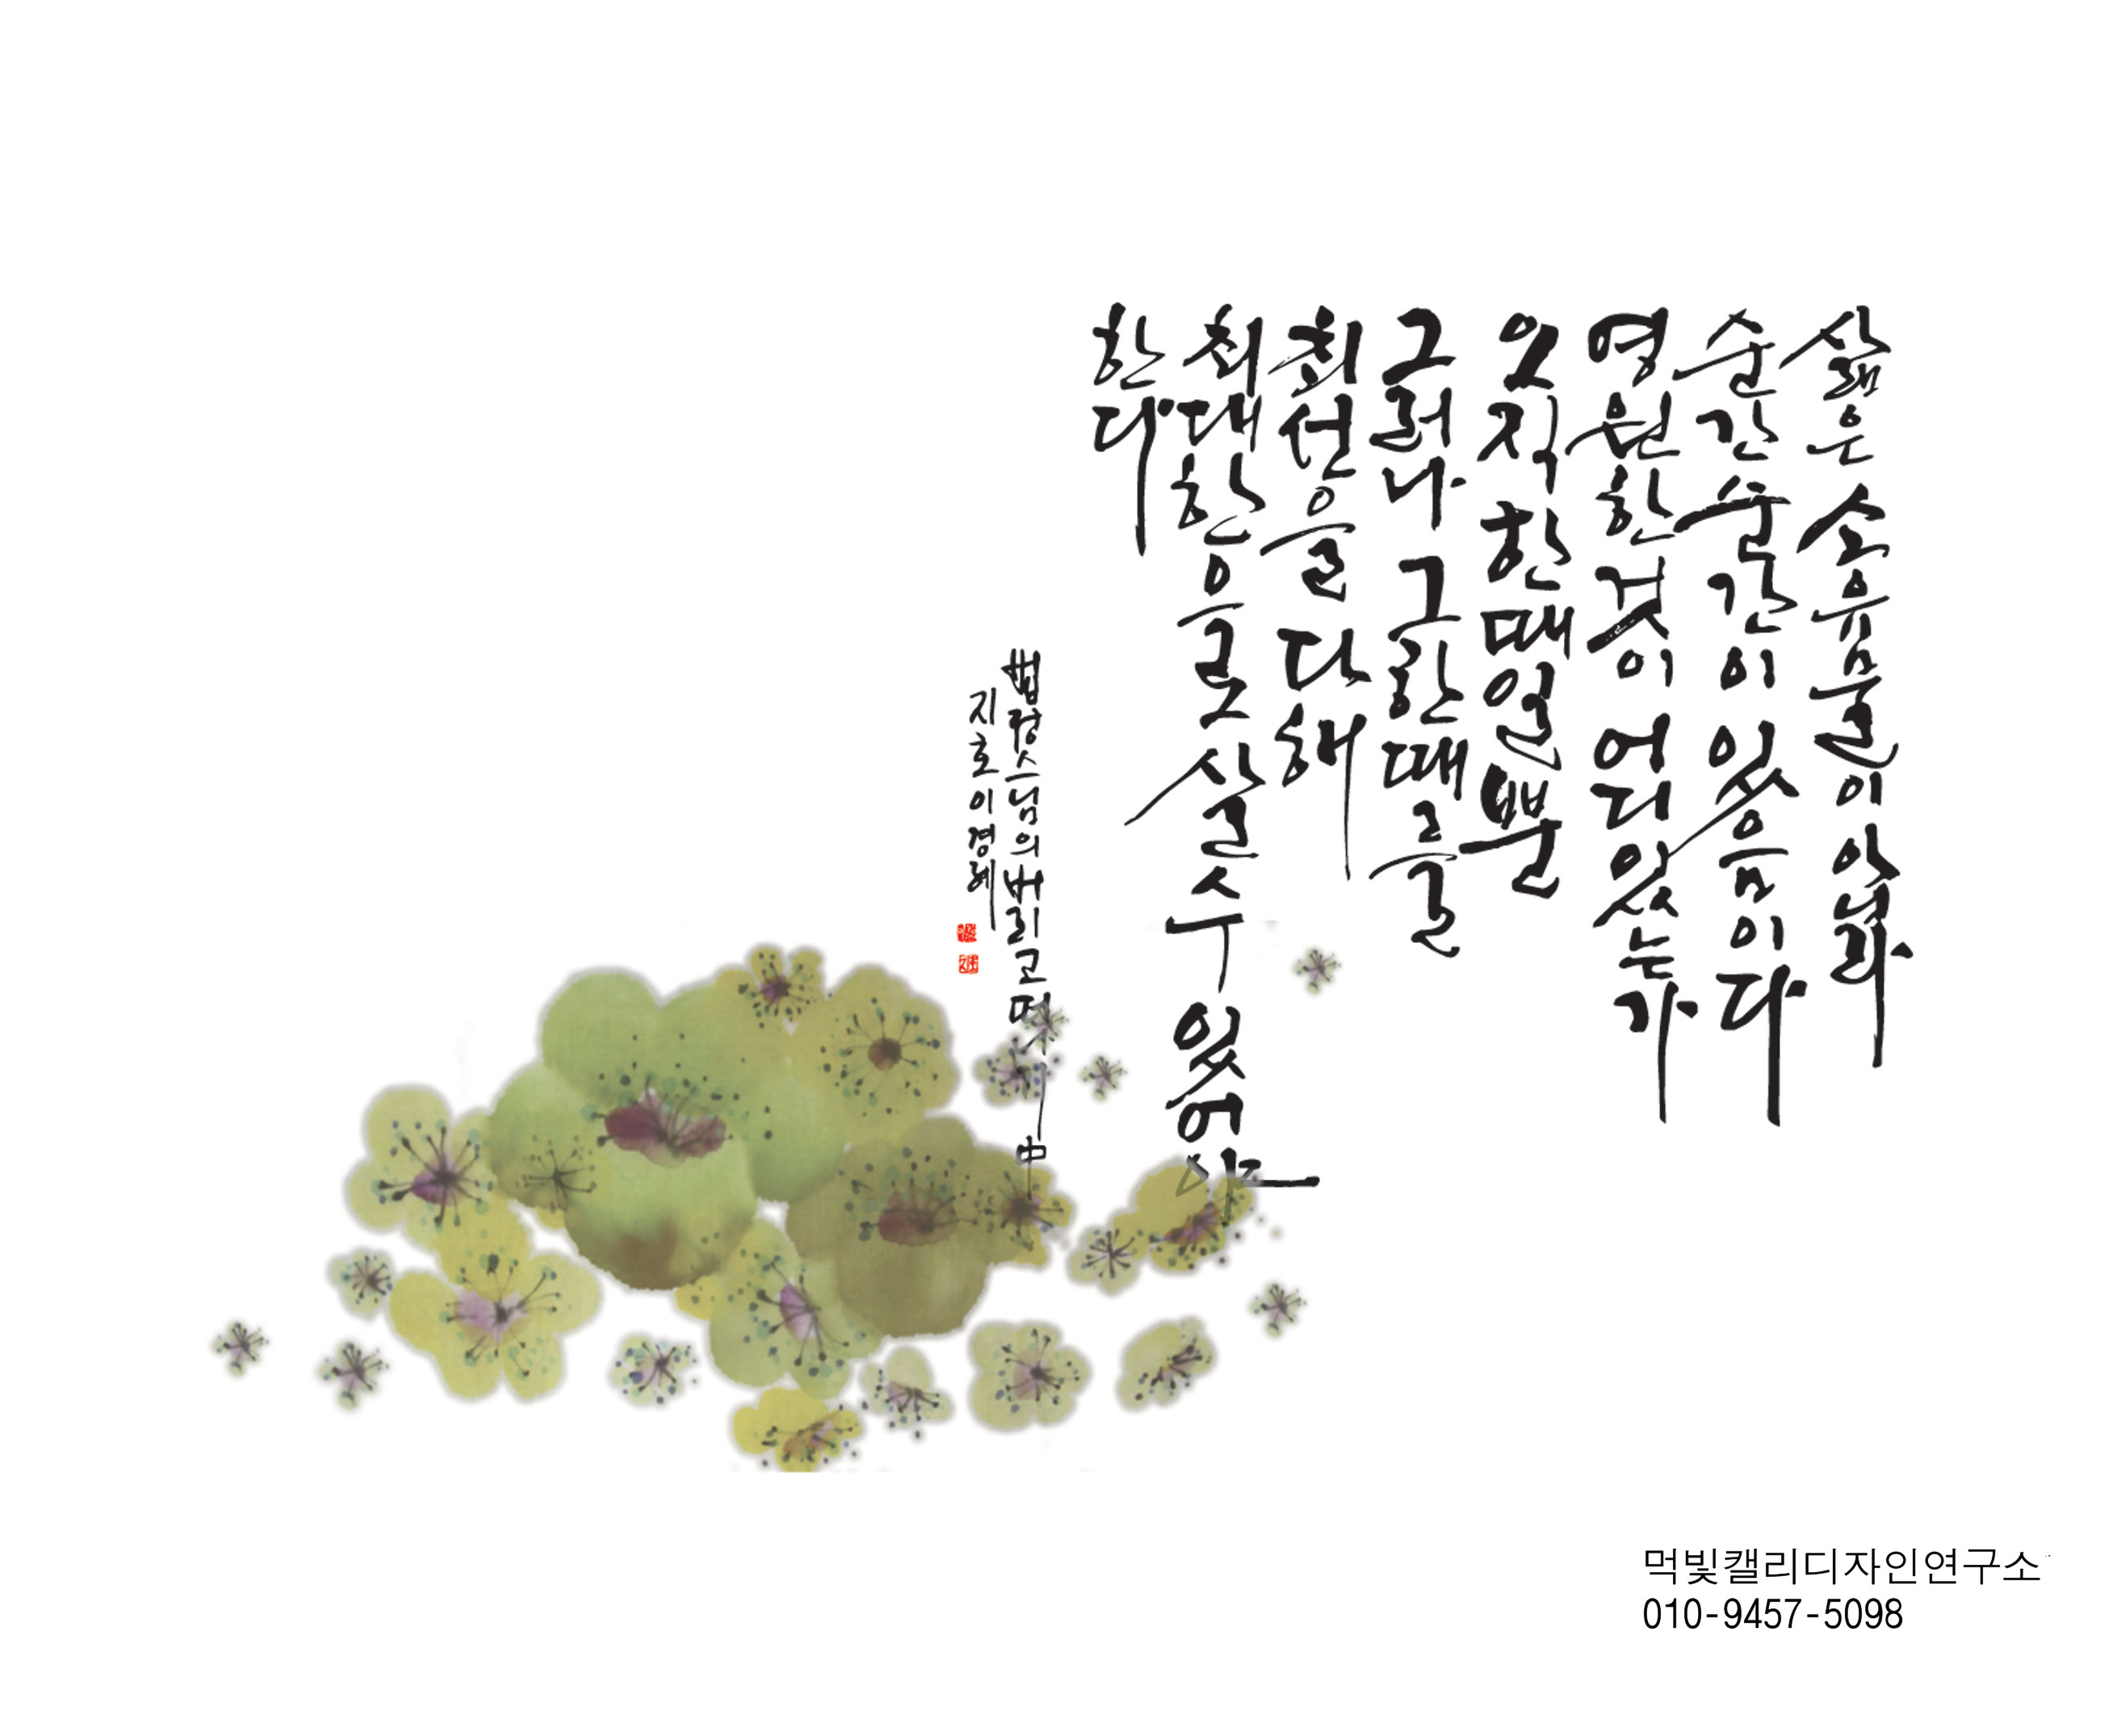 삶은 소유물이 아니라
순간순간이 있음이다
영원한 것이 어디 있는가
오직 한때일 뿐
그러나 그 한때를
최선을 다해
최대한으로 살 수 있어야
한다
법정스님의 버리고 떠나기 中
지호 이경례
먹빛캘리디자인연구소
010-9457-5098